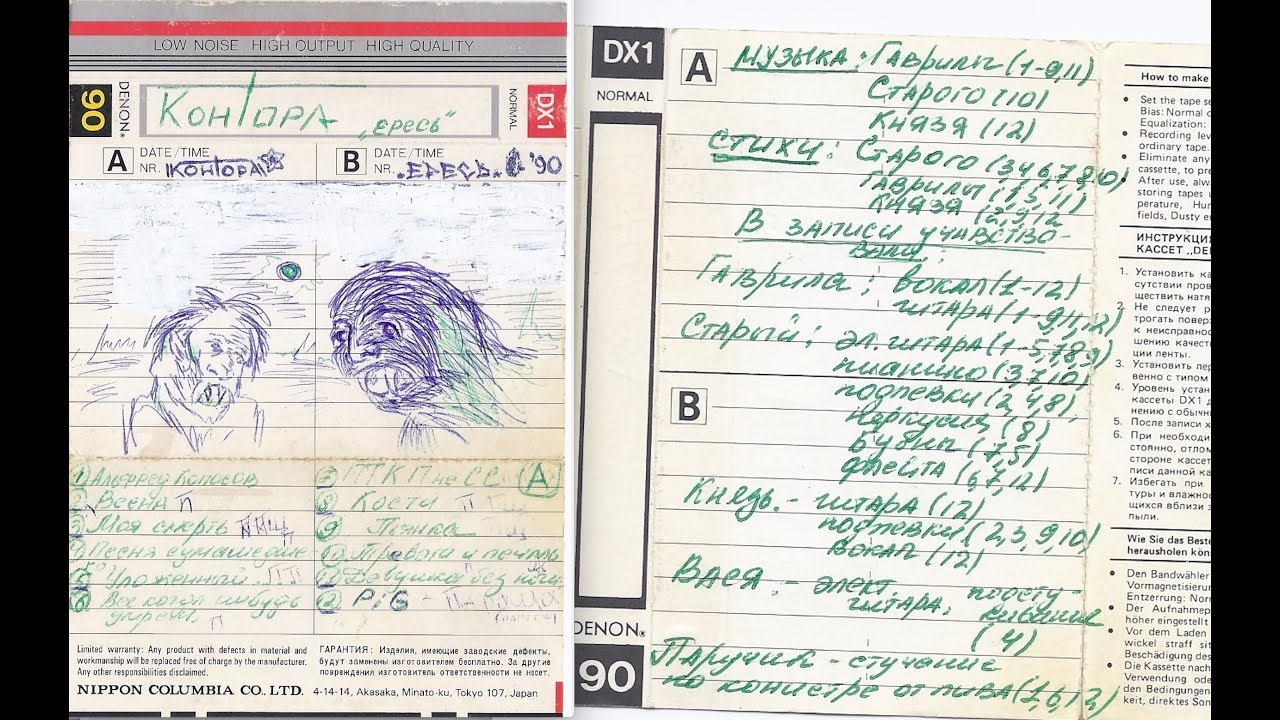 LOW NOISE HIGH OUTPUT HIGH QUALITY
90
DENON®
КОНТОРА „ЕРЕСЬ"
NORMAL
DX1
A DATE/TIME
NR. КОНТОРА
B DATE/TIME
NR. „ЕРЕСЬ" '90
① Альфред
② Весна П
③ Моя смерть
Песня сумасшедше-
го
Уложенный ПП
⑥ Все когда нибудь
умрем. П
⑦ ТКП не A
⑧ Кости
⑨ Пьянка
Тревоги и печаль
Девушка без
P.i.G
Limited warranty: Any product with defects in material and
workmanship will be replaced free of charge by the manufacturer.
Any other responsibilities disclaimed.
NIPPON COLUMBIA CO., LTD.
ГАРАНТИЯ: Изделия, имеющие заводские дефекты,
будут заменены изготовителем бесплатно. За другие
повреждения изготовитель ответственности не несет.
4-14-14, Akasaka, Minato-ku, Tokyo 107, Japan
DX1
NORMAL
A
МУЗЫКА: ГАВРИЛЫ (1-9,11)
СТАРОГО (10)
КНЯЗЯ (12)
СТИХИ: СТАРОГО (3,4,6,7,8,10)
ГАВРИЛЫ (1,5,11)
КНЯЗЯ (2,9,12
В ЗАПИСИ УЧАВСТВО-
ВАЛИ:
ГАВРИЛА: ВОКАЛ (1-12)
ГИТАРА (1-9,11,12)
СТАРЫЙ: ЭЛ. ГИТАРА (1-5,7,8,9)
ПИАНИНО (3,7,10)
B
ПОДПЕВКИ (2,4,8),
ПЕРКУСИЯ (8)
БУБЕН (7,5)
ФЛЕЙТА (6,7,12)
КНЯЗЬ - ГИТАРА (12)
ПОДПЕВКИ (2,3,9,10)
ВОКАЛ (12)
ВАСЯ - ЭЛЕКТ. ПОСТУ-
ГИТАРА, КИВАНИЕ
(4)
DENON®
90
ПАРУЧИК - СТУЧАНИЕ
ПО КОНИСТРЕ ОТ ПИВА (1,6,12)
How to make
• Set the tape se
Bias: Normal
Equalization:
• Recording lev
ordinary tape.
• Eliminate any
cassette, to pre
• After use, alw
storing tapes
perature, Hum
fields, Dusty en
ИНСТРУКЦИ
КАССЕТ „DE
1. Установить ка
сутствии пров
ществить натя
2. Не следует р
трогать повер
к неисправнос
шению качест
ции ленты.
3. Установить пер
венно с типом
4. Уровень устан
кассеты DX1 д
нению с обычн
5. После записи х
6. При необходи
стоянно, отлом
стороне кассет
писи данной ка
7. Избегать при
туры и влажно
щихся вблизи з
пыли.
Wie Sie das Beste
herausholen kön
• Den Bandwähler
Vormagnetisierun
Entzerrung: Norm
• Der Aufnahmep
höher eingestellt
• Vor dem Laden
Wickel straff si
Beschädigung des
• Die Kassette nach
Verwendung ode
den Bedingungen
keit, direktes Son